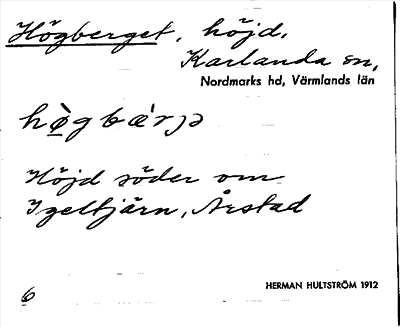 Högberget, höjd.
Karlanda sn,
Nordmarks hd, Värmlands län
hø̀gbæ'rjə
Höjd söder om
Igeltjärn, Årstad
HERMAN HULTSTRÖM 1912
6